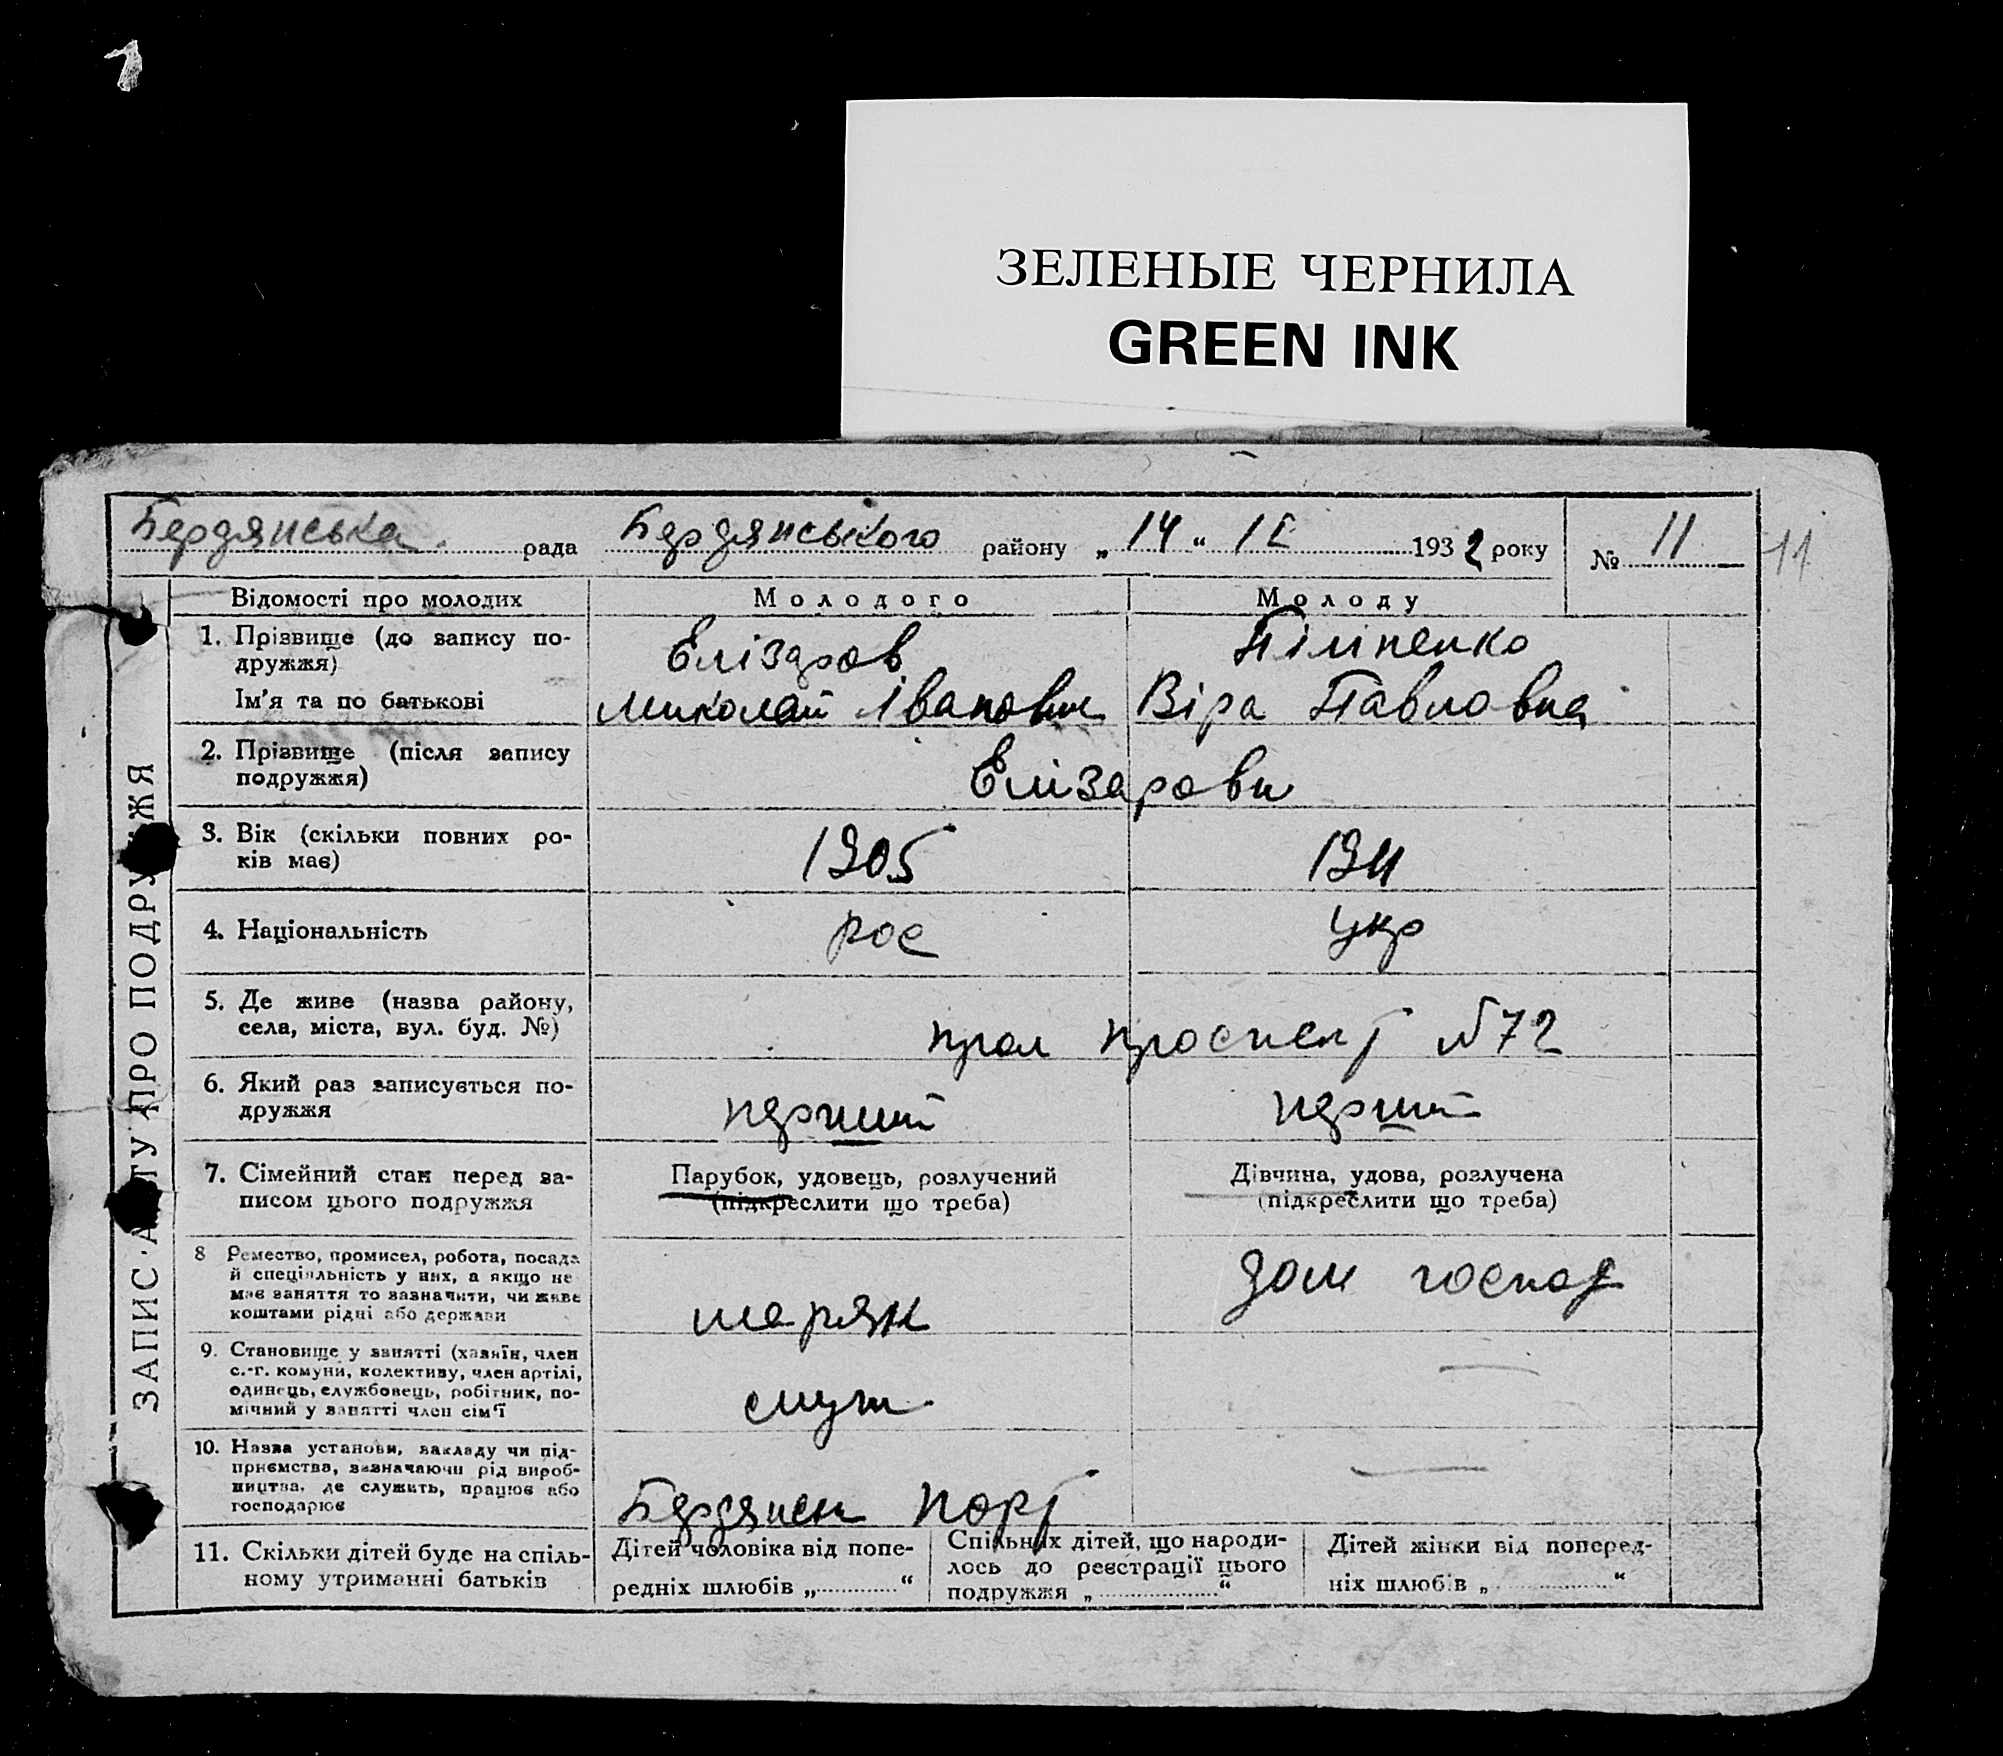 ЗЕЛЕНЫЕ ЧЕРНИЛА
GREEN INK
Бердянська рада Бердянського району „14“ 1932 року № 11 11
ЗАПИС АКТУ ПРО ПОДРУЖЖЯ
Відомості про молодих Молодого Молоду
1. Прізвище (до запису по-
дружжя)
Елізаров Піліпенко
Ім'я та по батькові Миколай Іванович Віра Павловна
2. Прізвище (після запису
подружжя)
Елізарови
3. Вік (скільки повних ро-
ків має)
1905 1911
4. Національність рос укр
5. Де живе (назва району,
села, міста, вул. буд. №)
прол проспект №72
6. Який раз записується по-
дружжя
перший перший
7. Сімейний стан перед за-
писом цього подружжя
Парубок, удовець, розлучений
(підкреслити що треба)
Дівчина, удова, розлучена
(підкреслити що треба)
8 Ремество, промисел, робота, посада
й спеціяльність у них, а якщо не
має заняття то зазначити, чи живе
коштами рідні або держави
моряк дом господ
9. Становище у занятті (хазяїн, член
с.-г. комуни, колективу, член артілі,
одинець, службовець, робітник, по-
мічний у занятті член сім'ї
служ
10. Назва установи, закладу чи під-
приємства, зазначаючи рід вироб-
ництва, де служить, працює або
господарює
Бердянськ порт
11. Скільки дітей буде на спіль-
ному утриманні батьків
Дітей чоловіка від попе-
редніх шлюбів „ “
Спільних дітей, що народи-
лось до реєстрації цього
подружжя „ “
Дітей жінки від поперед-
ніх шлюбів „ “